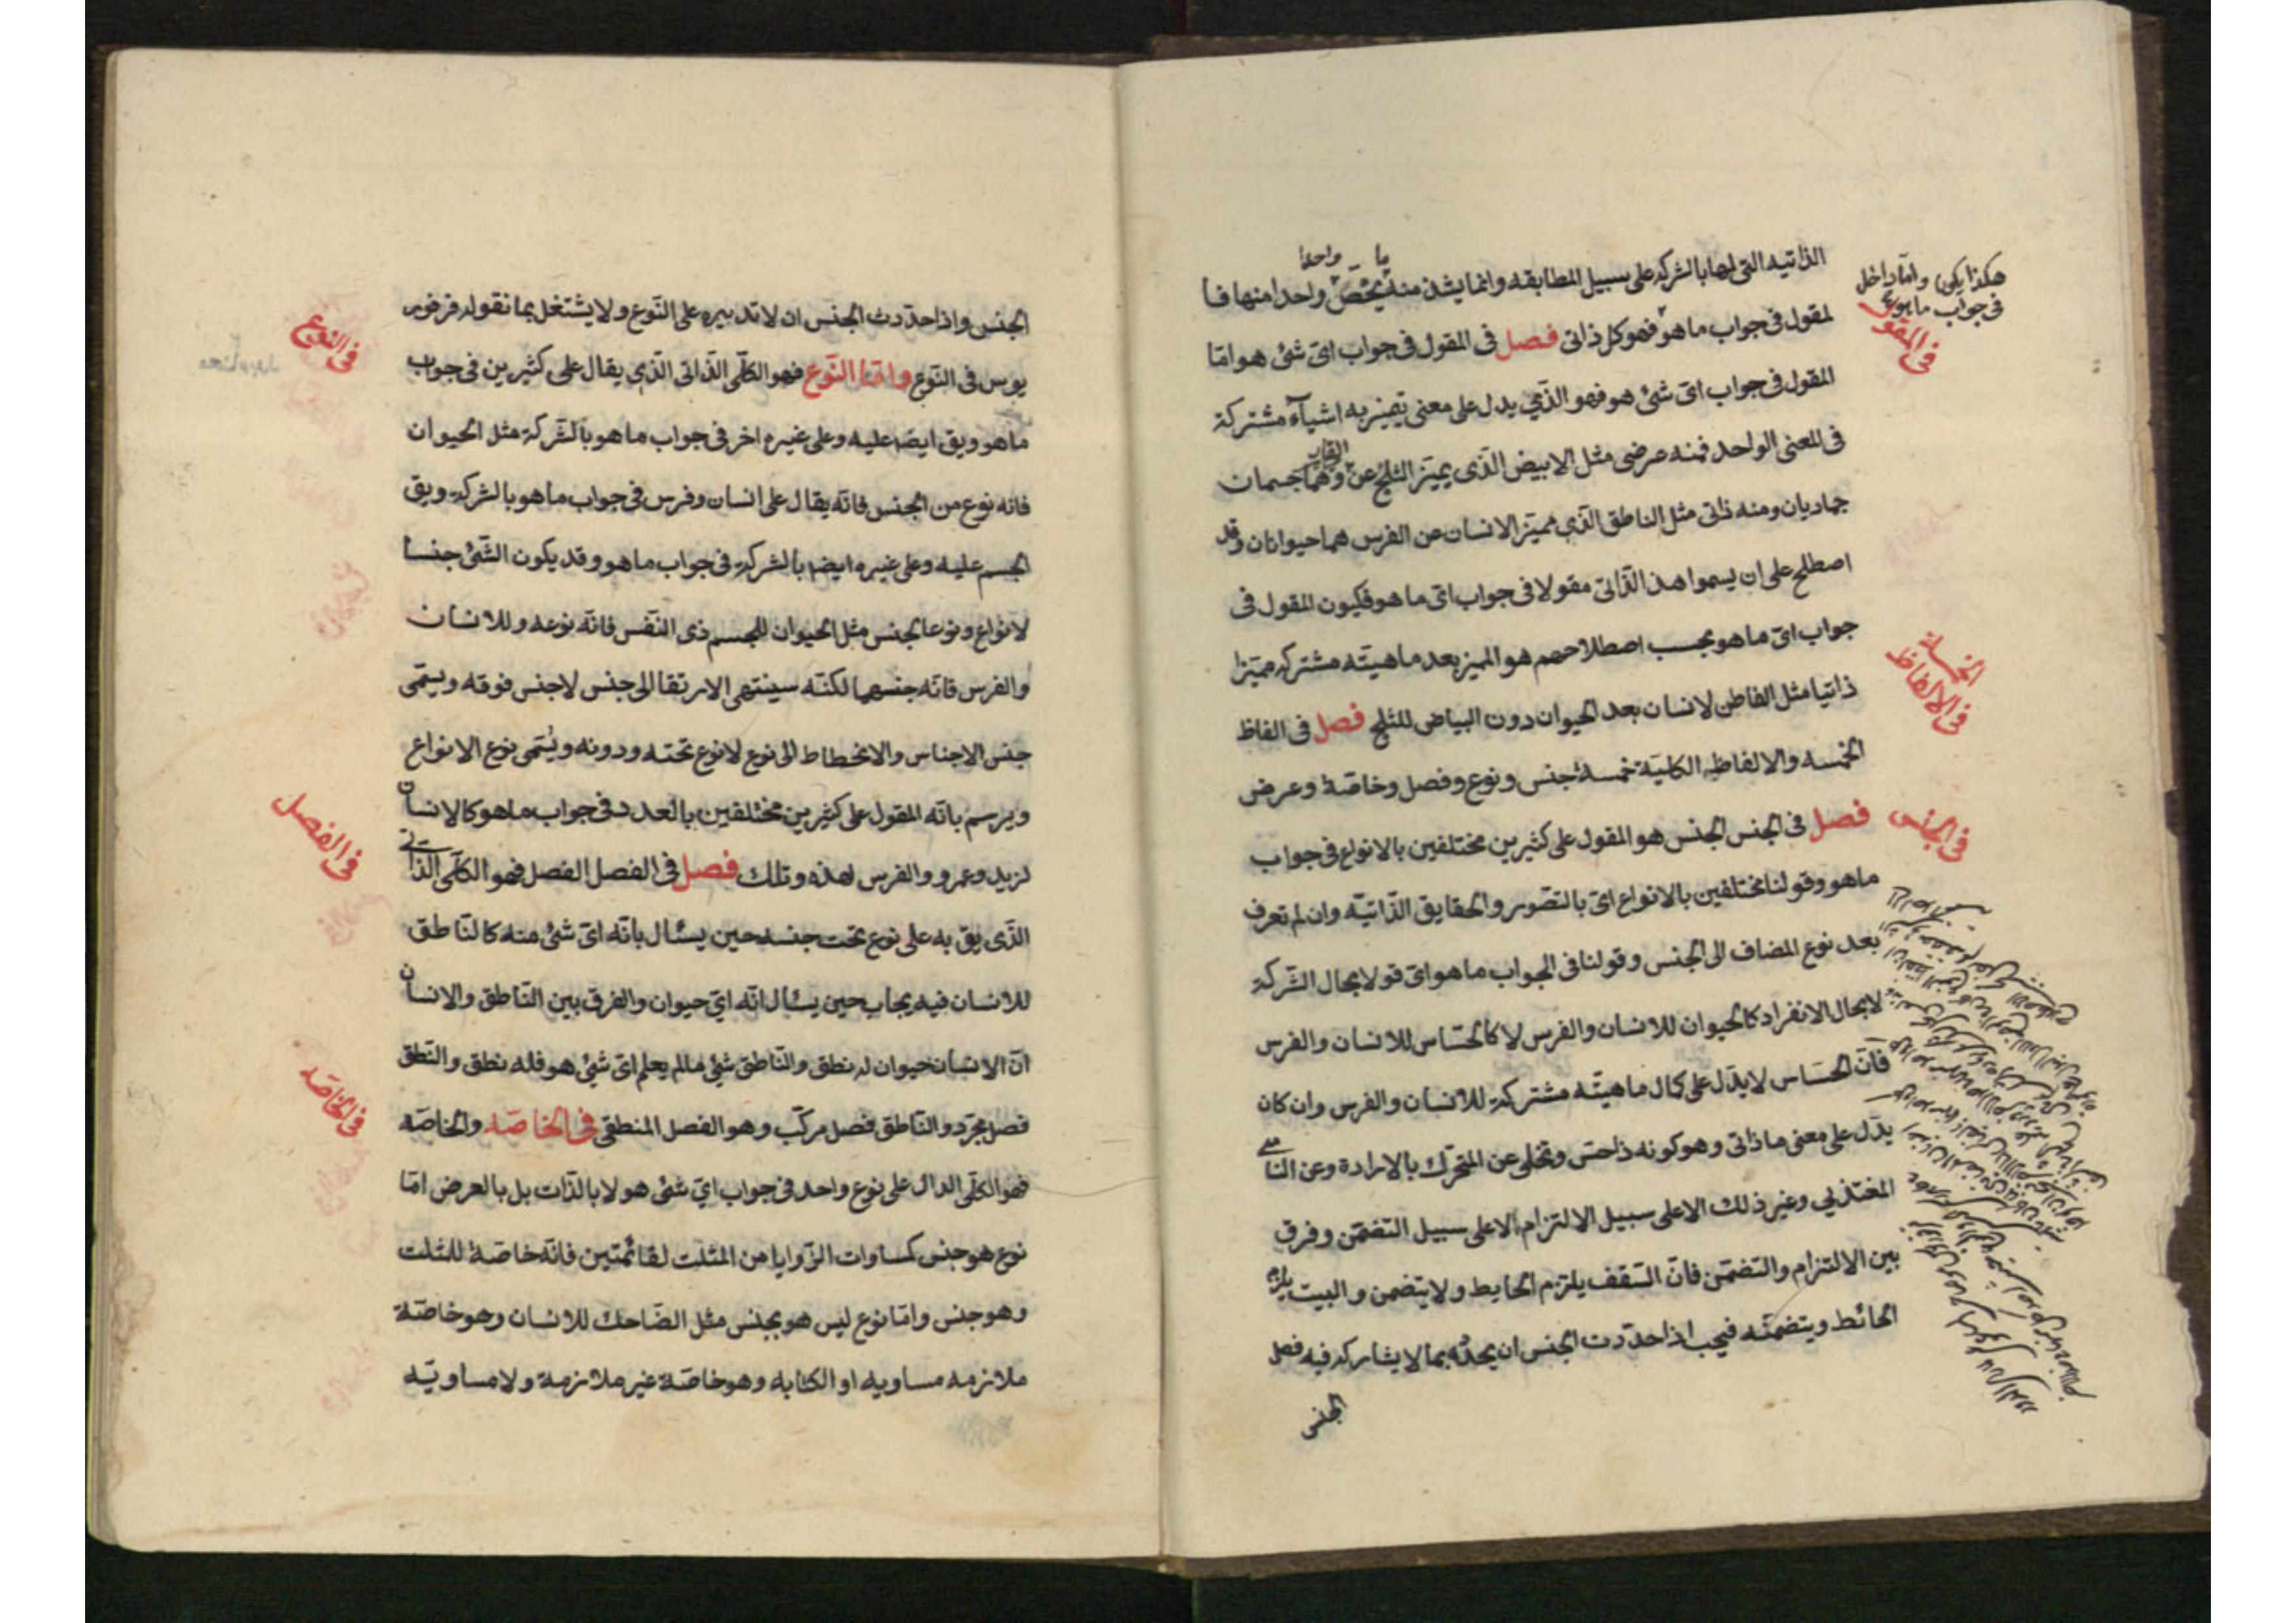 ما واحدا
الذاتيه التى لها بالشركه على سبيل المطابقه وانما يشذ منه يخص واحدا منها فا
لمقول فى جواب ما هو فهو كل ذاتى فصل فى المقول فى جواب اىّ شئ هو امّا
المقول فى جواب اىّ شئ هو فهو الذّي يدل على معنى تميز به اشيآء مشتركة
فى المعنى الواحد فمنه عرضى مثل الابيض الذّى يميّز الثلج عن القار وهما جسمان
جماديان ومنه ذاتى مثل الناطق الذّي مميّز الانسان عن الفرس هما حيوانان وقد
اصطلح على ان يسموا هذ الذّاتى مقولا فى جواب اى ما هو فكيون المقول فى
جواب اىّ ما هو بحسب اصطلاحهم هو المميز بعد ماهيتّه مشتركه مميّزا
ذاتيا مثل الفاطن لانسان بعد الحيوان دون البياض للثلج فصل فى الفاظ
الخمسه والالفاظ الكليّة خمسة جنس ونوع وفصل وخاصّة وعرض
فصل فى الجنس الجنس هو المقول على كثيرين مختلفين بالانواع فى جواب
ما هو وقولنا مختلفين بالانواع اىّ بالتصّور والحقايق الذّاتيّه وان لم تعرف
بعد نوع المضاف الى الجنس وقولنا فى الجواب ما هو اىّ قولا بحال الشّركة
لابحال الانفراد كالحيوان للانسان والفرس لا كالحسّاس للانسان والفرس
فانّ الحسّاس لا يدّل على كمال ماهيتّه مشتركة للانسان والفرس وان كان
يدّل على معنى ما ذاتى وهو كونه ذا حسّ وتخلى عن المتحرّك بالارادة وعن النامى
المغتذي وغير ذلك الا على سبيل الالتزام الا على سبيل التضمّن وفرق
بين الالتزام والتضمّن فانّ السّقف يلتزم الحايط ولا يتضمن والبيت يلزم
الحائط ويتضمنّه فيجب اذا حدّدت الجنس ان يحدّه بما لا يشاركه فيه فصل
الجنس
هكذا يكن وامّا داخل
فى جواب ما هو
فى المقول
فى الالفاظ
الخمسة
فى الجنس
الجنس واذا حدّدت الجنس ان لا تدبيره على النّوع ولا يشتغل بما نقوله فرفور
يوس فى النّوع وامّا النّوع فهو الكلّى الذّاتى الذّي يقال على كثيرين فى جواب
ما هو ويق ايضا عليه وعلى غيره اخر فى جواب ما هو بالشّركة مثل الحيوان
فانه نوع من الجنس فانّه يقال على انسان وفرس فى جواب ما هو بالشركة ويق
الجسم عليه وعلى غيره ايضا بالشركة فى جواب ما هو وقد يكون الشّئ جنسا
لانواع ونوعا لجنس مثل الحيوان للجسم ذى النّفس فانّه نوعه وللانسان
والفرس فانّه جنسهما لكنّه سينتهى الارتقا الى جنس لا جنس فوقه ويسمّى
جنس الاجناس والانحطاط الى نوع لا نوع تحته ودونه ويسمّى نوع الانواع
ويرسم بانّه المقول على كثيرين مختلفين بالعدد فى جواب ما هو كالانسان
لزيد وعمرو والفرس لهذه وتلك فصل فى الفصل الفصل فهو الكلّى الذّاتى
الذّى يق به على نوع تحت جنسه حين يسئال بانّه اىّ شئ منه كالنّاطق
للانسان فيه يجاب حين يسئال انّه اىّ حيوان والفرق بين النّاطق والانسان
انّ الانسان حيوان له نطق والنّاطق شئ ما لم يعلم اىّ شئ هو فله نطق والنّطق
فصل مجرّد والنّاطق فصل مركّب وهو الفصل المنطقى فى الخاصّه والخاصّه
فهو الكلّى الدال على نوع واحد فى جواب اىّ شئ هو لا بالذّات بل بالعرض امّا
نوع هو جنس كساوات الزّوايا من المثلت لقائمتين فانّه خاصّة للمثلت
وهو جنس وامّا نوع ليس هو بجنس مثل الضّاحك للانسان وهو خاصّة
ملازمه مساويه او الكتابه وهو خاصّة غير ملازمة ولا مساويّه
فى النوع
فى الفصل
فى الخاصّه